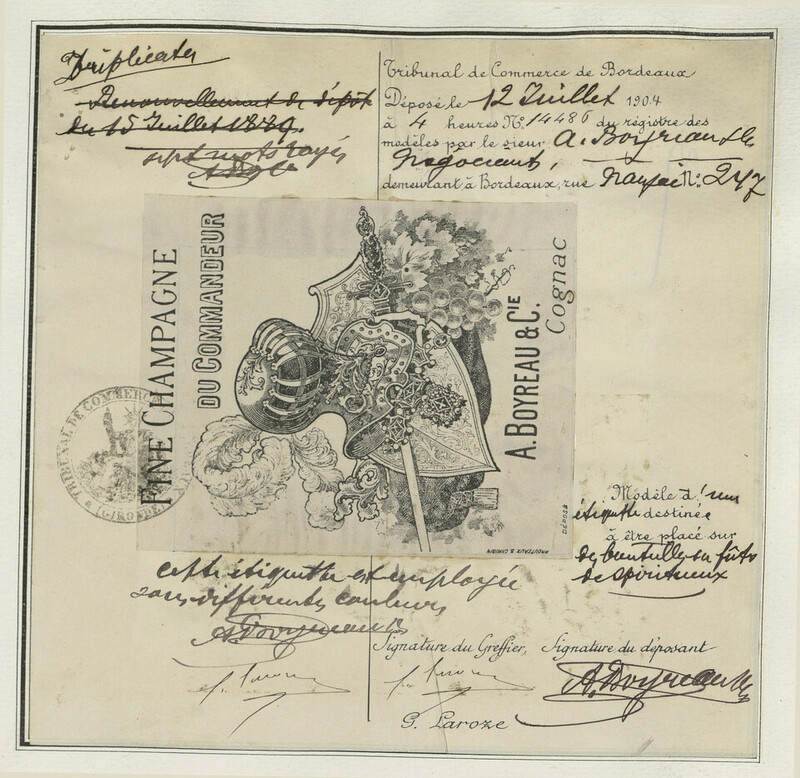 Triplicata
Renouvellement de dépôt
du 15 Juillet 1889.
sept mots rayés
Tribunal de Commerce de Bordeaux
Déposé le 12 Juillet 1904
à 4 heures No. 14486 du régistre des
modèles par le sieur A. Boyreau & Cie
Négociants,
demeurant à Bordeaux, rue No. 247
FINE CHAMPAGNE
DU COMMANDEUR
A. BOYREAU & CIE.
Cognac
DÉPOSÉ
TRIBUNAL DE COMMERCE
(GIRONDE)
Modèle d'une
étiquette destinée
à être placé sur
des bouteilles ou fûts
de spiritueux
cette étiquette est employée
sous différentes couleurs
A Boyreau & Cie
Signature du Greffier, Signature du déposant
A. Boyreau & Cie
G. Laroze